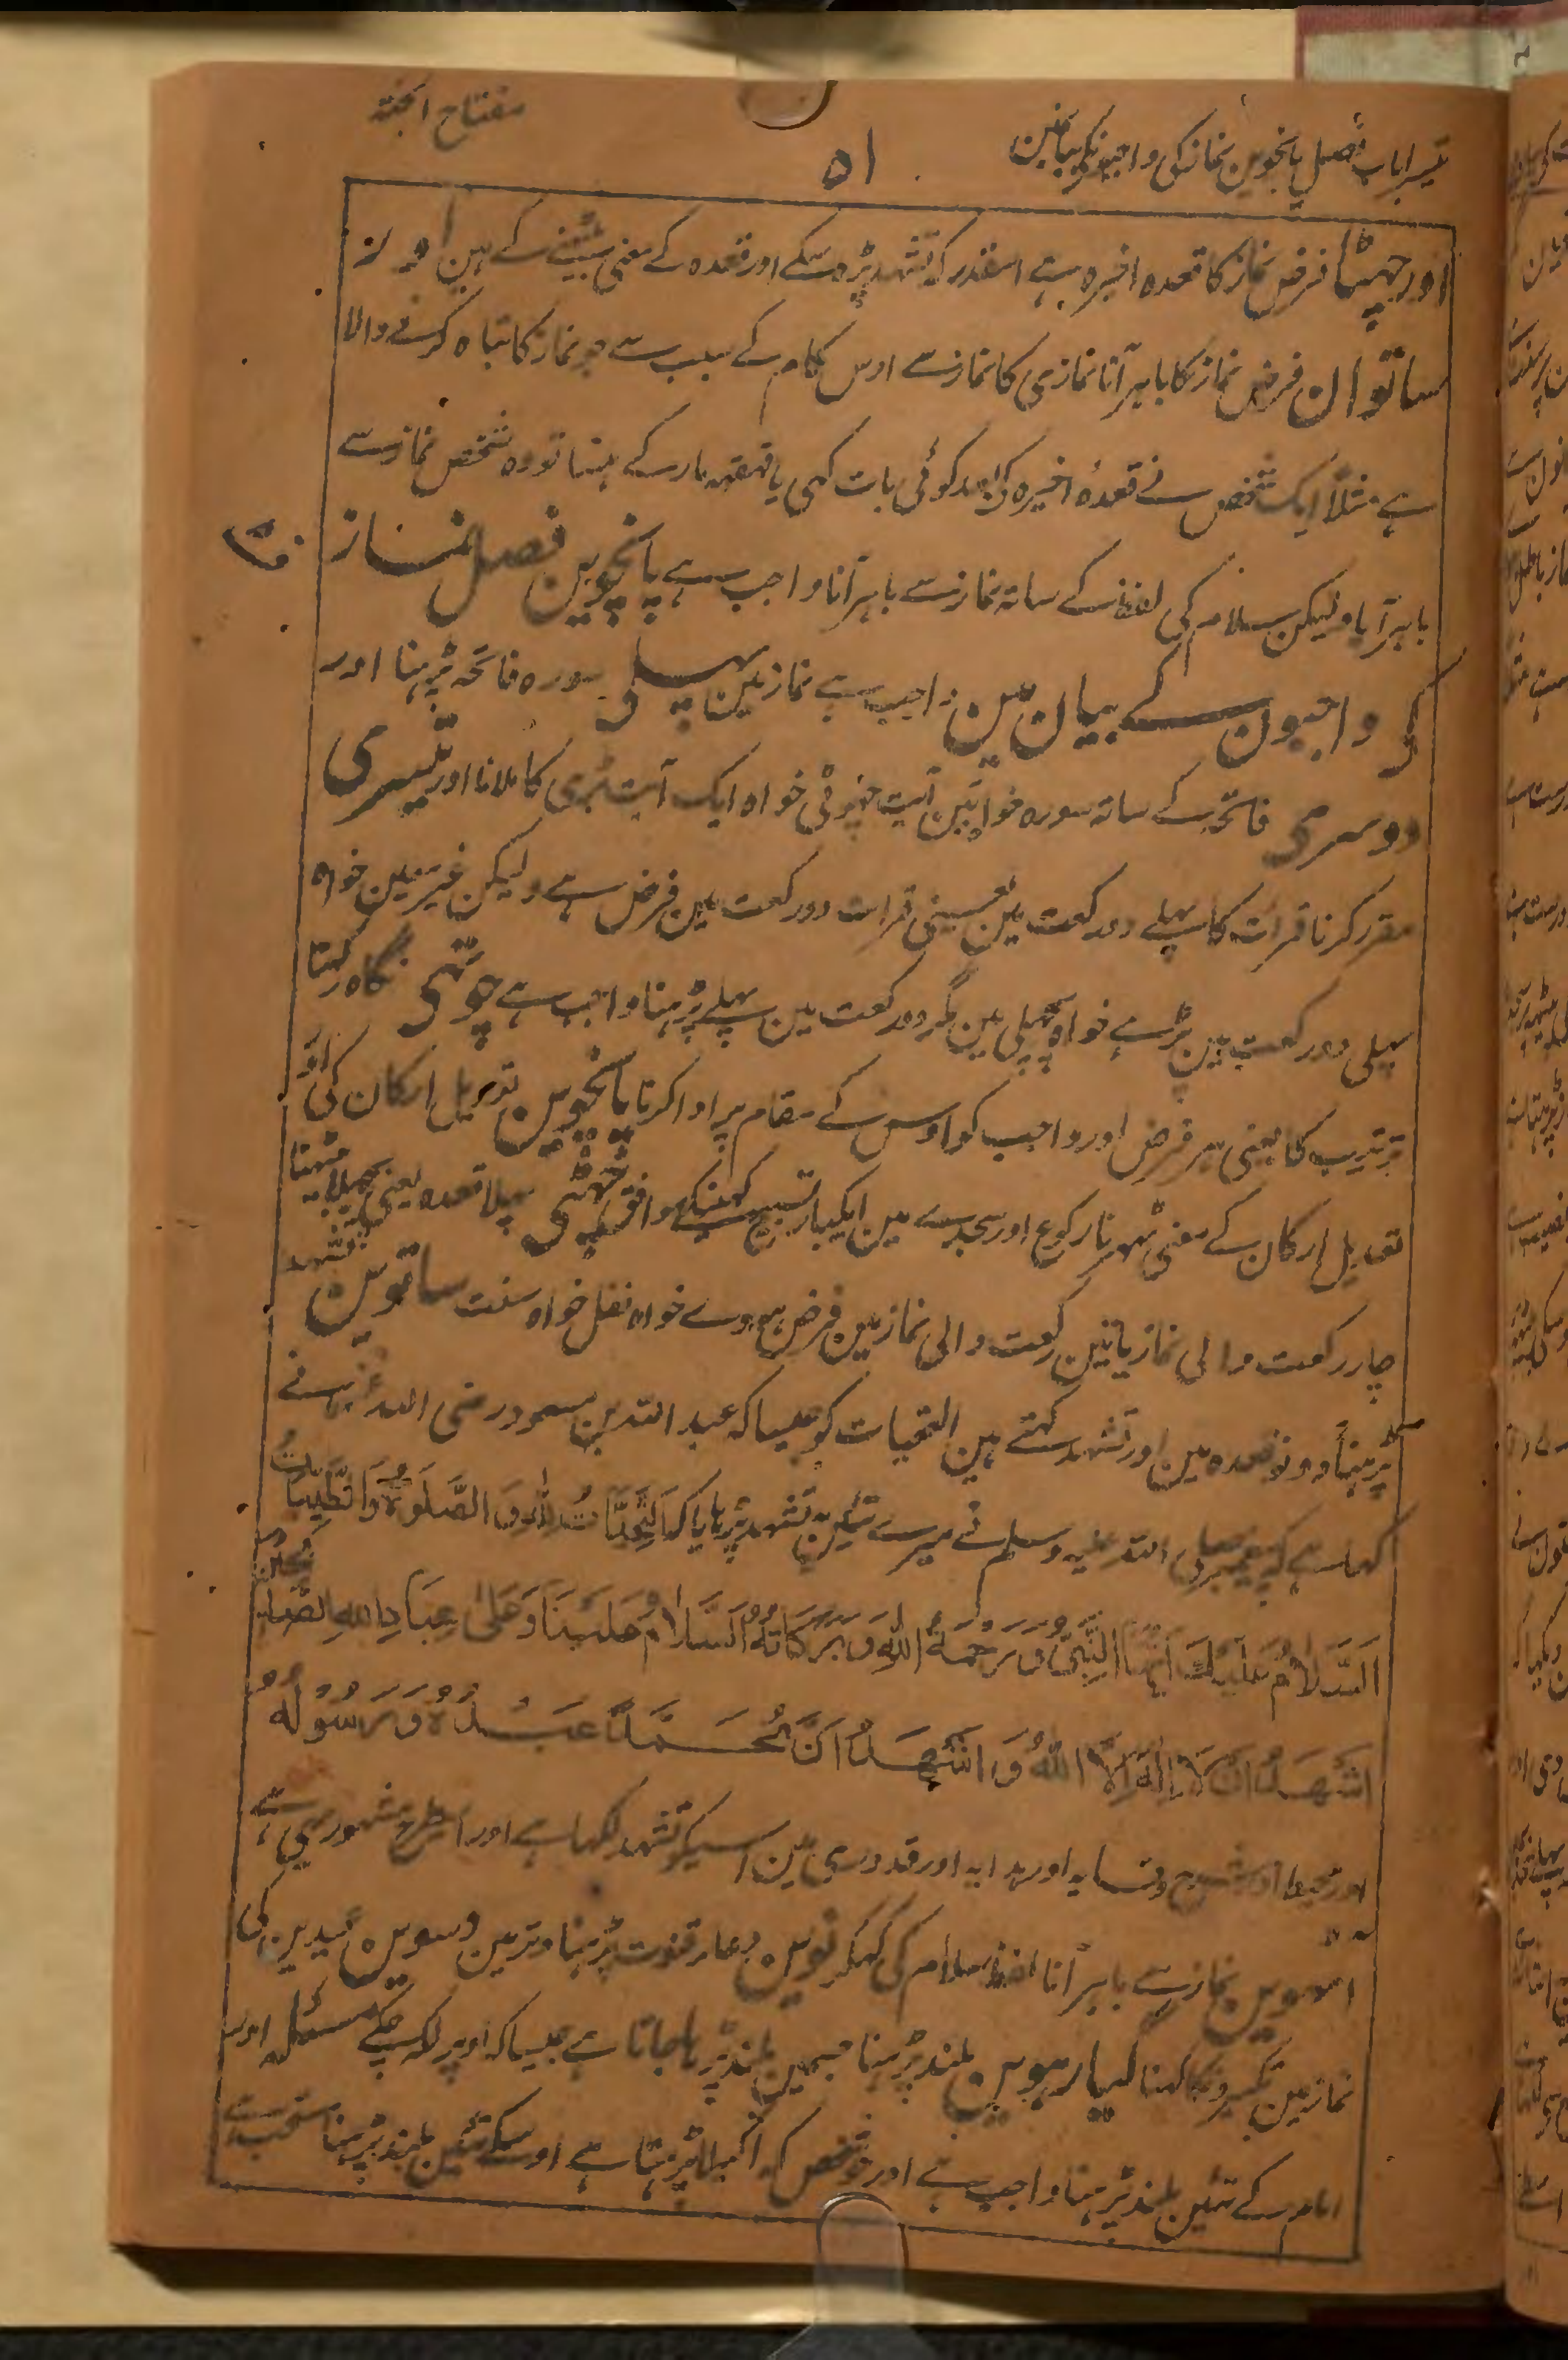 مفتاح الجنة
۵۱
تیسرا باب فصل پانچوین نماز کی واجبونکی بیانمین
اور چہٹا فرض نماز کا قعدہ اخیرہ ہے اسقدر کہ تشہد پڑہ سکے اور قعدہ کے معنی بیٹہنے کے ہین اور
ساتوان فرض نماز کا باہر آنا نمازی کا نماز سے اوس کام کے سبب سے جو نماز کا تباہ کرنے والا
ہے مثلاً ایک شخص نے قعدۂ اخیرہ کی بعد کوئی بات کہی یا قہقہہ مار کے ہنسا تو وہ شخص نماز سے
باہر آیا و لیکن سلام کی لفظ کے ساتہ نماز سے باہر آنا واجب ہے پانچوین فصل نماز
کی واجبون کے بیان مین واجب ہے نماز مین پہلی سورہ فاتحہ پڑہنا اور
دوسری فاتحہ کے ساتہ سورہ خواہ تین آیت چہوٹی خواہ ایک آیت بڑی کا ملانا اور تیسری
مقرر کرنا قرات کا پہلے دو رکعت مین یعنی قرات دو رکعت مین فرض ہے ولیکن غیر معین خواہ
پہلی دو رکعت مین پڑہے خواہ پچہلی مین مگر دو رکعت مین پہلے پڑہنا واجب ہے چوتہی نگاہ رکہنا
ترتیب کا یعنی ہر فرض اور واجب کو اوس کے مقام پر ادا کرنا پانچوین تعدیل ارکان کی اور
تعدیل ارکان کے معنی ٹہرنا رکوع اور سجدے مین ایکبار تسبیح کہنیکے موافق چہٹی پہلا قعدہ یعنی پہلا بیٹہنا
چار رکعت والی نماز یا تین رکعت والی نماز مین فرض ہووے خواہ نفل خواہ سنت ساتوین تشہد
پڑہنا دونو قعدہ مین اور تشہد کہتے ہین التحیات کو جیسا کہ عبد اللہ بن مسعود رضی اللہ عنہ نے
کہا ہے کہ پیغمبر صلی اللہ علیہ وسلم نے میرے تئین یہ تشہد پڑہایا کہ اَلتَّحِيَّاتُ لِلّٰهِ وَ الصَّلَوٰةُ وَالطَّيِّبَاتُ
اَلسَّلَامُ عَلَيْكَ اَيُّهَا النَّبِيُّ وَ رَحْمَةُ اللّٰهِ وَ بَرَكَاتُهٗ اَلسَّلَامُ عَلَيْنَا وَ عَلٰى عِبَادِ اللّٰهِ الصّٰلِحِيْنَ
اَشْهَدُ اَنْ لَا اِلٰهَ اِلَّا اللّٰهُ وَ اَشْهَدُ اَنَّ مُحَمَّدًا عَبْدُهٗ وَ رَسُوْلُهٗ
اور محیط اور شرح وقایہ اور ہدایہ اور قدوری مین اسیکو تشہد لکہا ہے اور اسیطرح مشہور بہی ہے
آٹہوین نماز سے باہر آنا لفظ سلام کی کہکر نوین دعاء قنوت پڑہنا وتر مین دسوین عیدین کی
نماز مین تکبیرونکا کہنا گیارہوین بلند پڑہنا جسمین بلند پڑہا جاتا ہے جیسا کہ اوپر لکہ چکے مسئلہ اور
امام کے تئین بلند پڑہنا واجب ہے اور جو شخص کہ اکیلا پڑہتا ہے اوسکے تئین بلند پڑہنا مستحب ہے